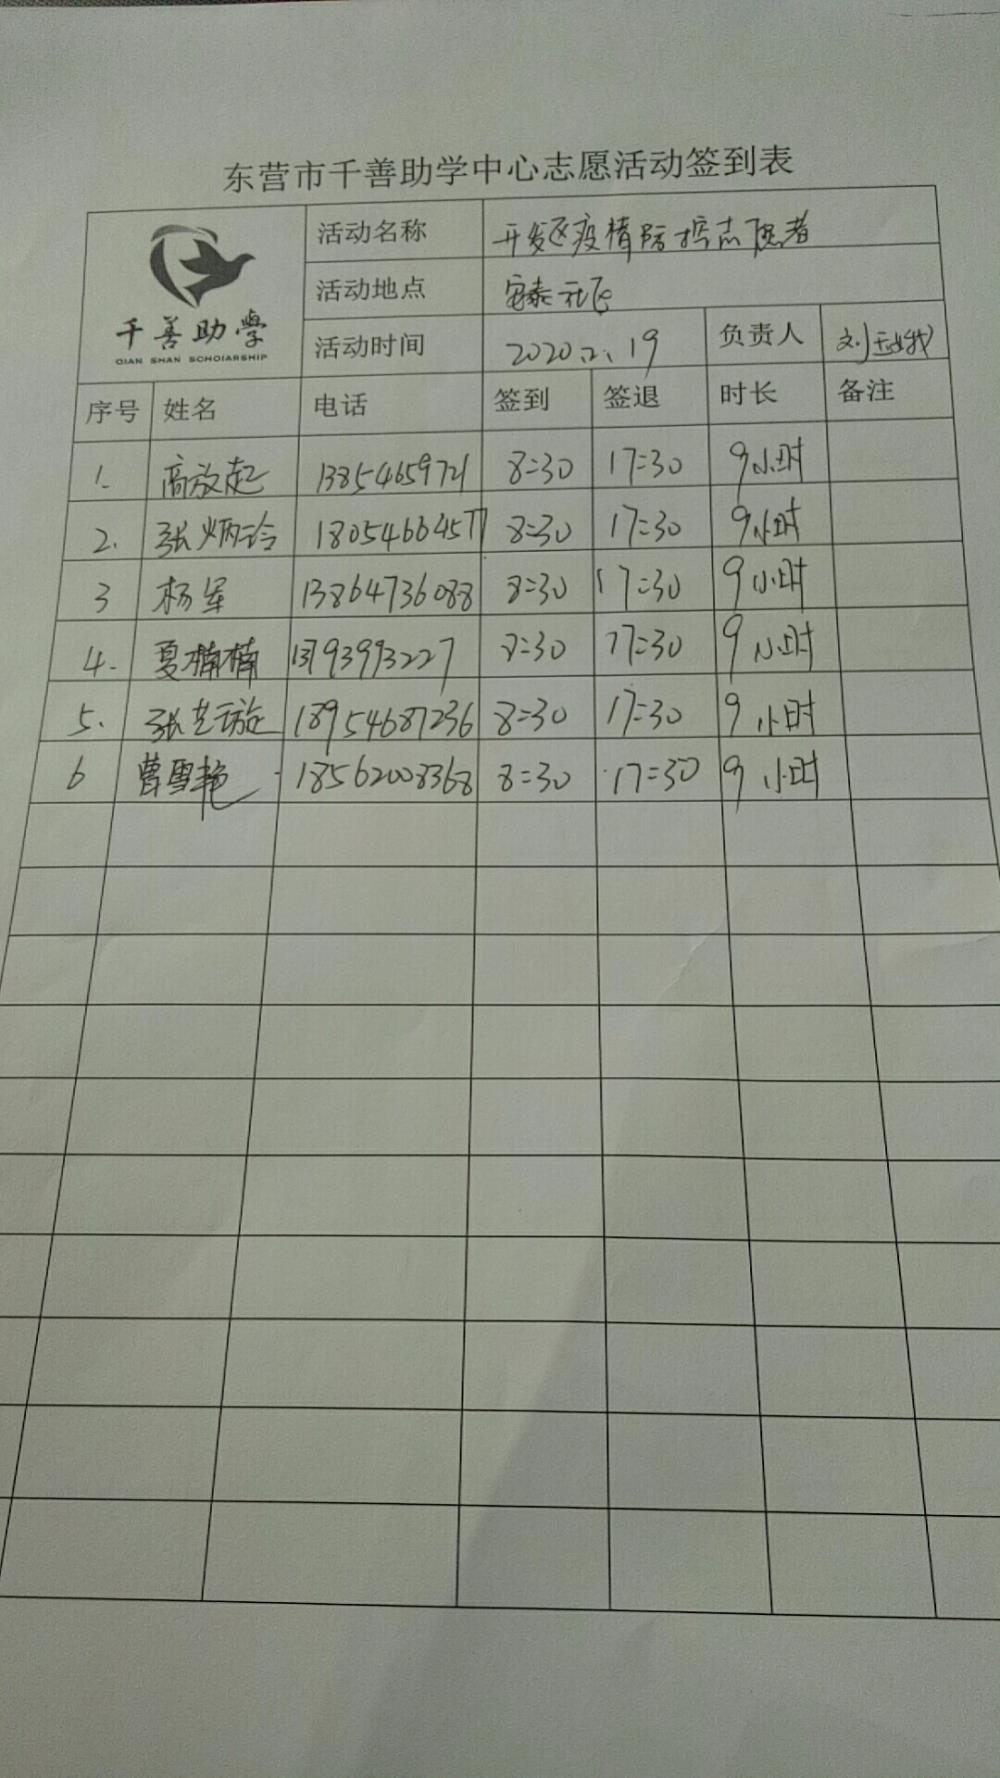 东营市千善助学中心志愿活动签到表
千善助学
QIAN SHAN SCHOIARSHIP
活动名称 开发区疫情防控志愿者
活动地点 安泰社区
活动时间 2020.2.19 负责人 刘
序号 姓名 电话 签到 签退 时长 备注
1. 高放起 13854659721 8:30 17:30 9小时
2. 张炳玲 18054664577 8:30 17:30 9小时
3 杨军 13864736088 8:30 17:30 9小时
4. 夏楠楠 13793993227 8:30 17:30 9小时
5. 张艺璇 18954687236 8:30 17:30 9小时
6 曹雪艳 18562008368 8:30 17:30 9小时